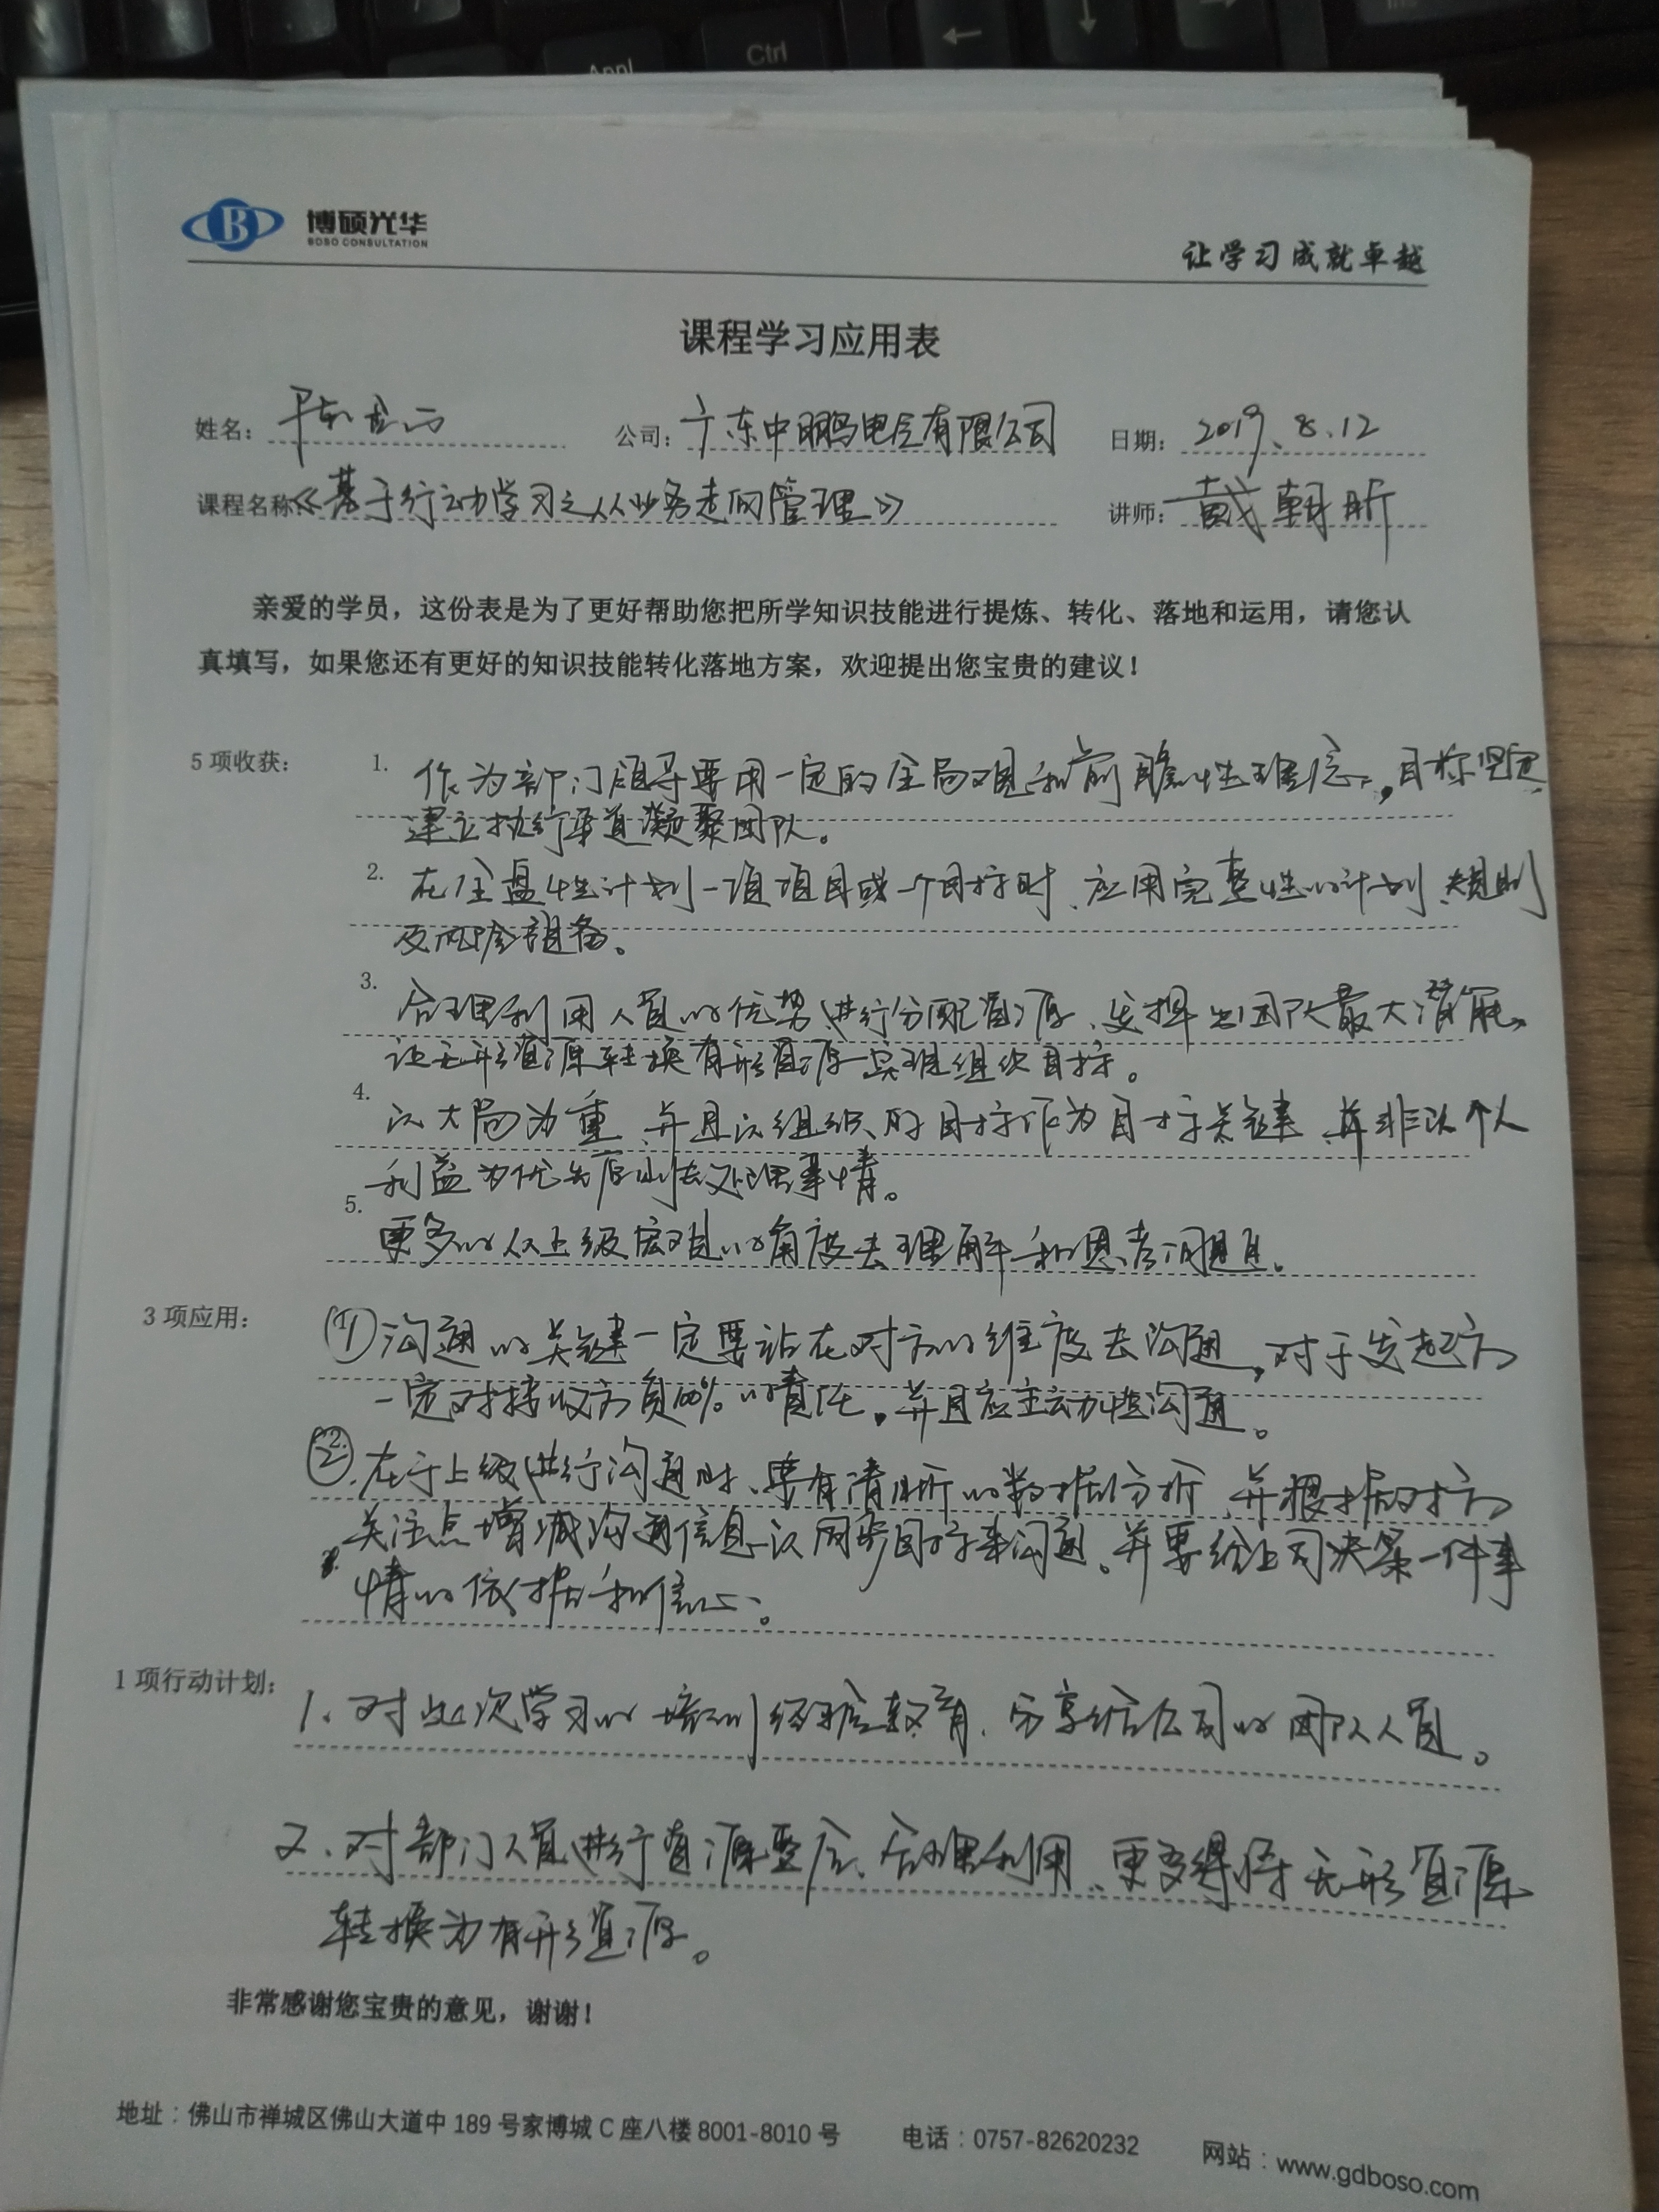 Appl
Ctrl
博硕光华
BOSO CONSULTATION
让学习成就卓越
课程学习应用表
姓名：
公司：广东中鹏电气有限公司
日期：2019.8.12
课程名称：《基于行动学习之从业务走向管理》
讲师：戴朝昕
亲爱的学员，这份表是为了更好帮助您把所学知识技能进行提炼、转化、落地和运用，请您认
真填写，如果您还有更好的知识技能转化落地方案，欢迎提出您宝贵的建议！
5 项收获：
1. 作为部门领导要用一定的全局观和前瞻性理念，目标坚定
建立执行渠道凝聚团队。
2. 在全盘性计划一项项目或一个目标时、应用完整性的计划、规则
及风险预备。
3. 合理利用人员的优势进行分配资源、发挥出团队最大潜能，
让无形资源转换有形资源实现组织目标。
4. 以大局为重、并且以组织的目标作为目标关键、并非以个人
利益为优先原则去处理事情。
5. 更多的从上级宏观的角度去理解和思考问题。
3 项应用：
① 沟通的关键一定要站在对方的维度去沟通，对于发起方
一定对接收方负100%的责任，并且应主动性沟通。
②. 在于上级进行沟通时、要有清晰的数据分析、并根据对方
关注点增减沟通信息以同步目标来沟通。并要给上司决策一件事
情的依据和信心。
1 项行动计划：
1、对此次学习的培训经验教育、分享给公司的团队人员。
2、对部门人员进行资源整合、合理利用、更多得将无形资源
转换为有形资源。
非常感谢您宝贵的意见，谢谢！
地址：佛山市禅城区佛山大道中 189 号家博城 C 座八楼 8001-8010 号 电话：0757-82620232 网站：www.gdboso.com